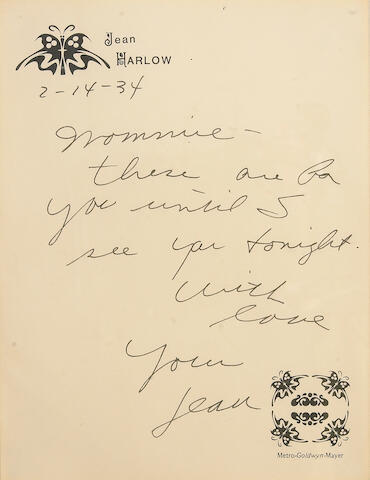 Jean
HARLOW
2-14-34
Mommie -
these are for
you until I
see you tonight.
With
love
Your
Jean
Metro-Goldwyn-Mayer